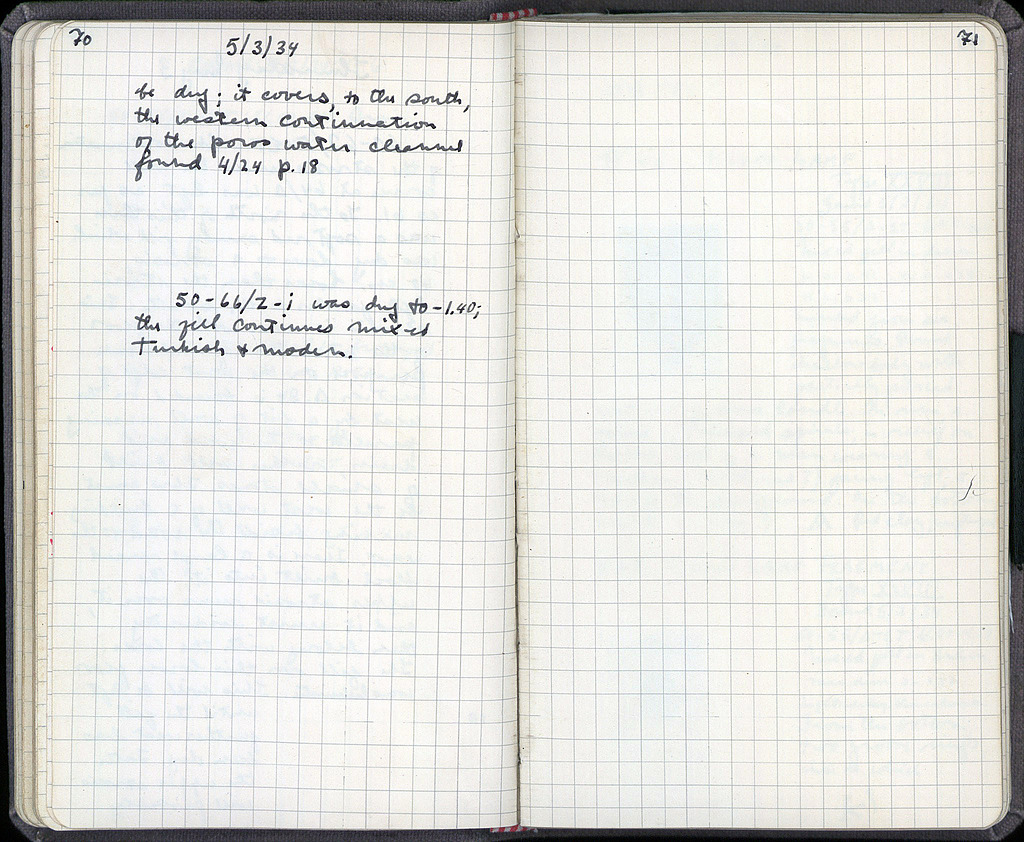 70
5/3/34
be dug; it covers, to the south,
the western continuation
of the poros water channel
found 4/24 p.18
50-66/Z-i was dug to -1.40;
the fill continues mixed
Turkish & modern.
71